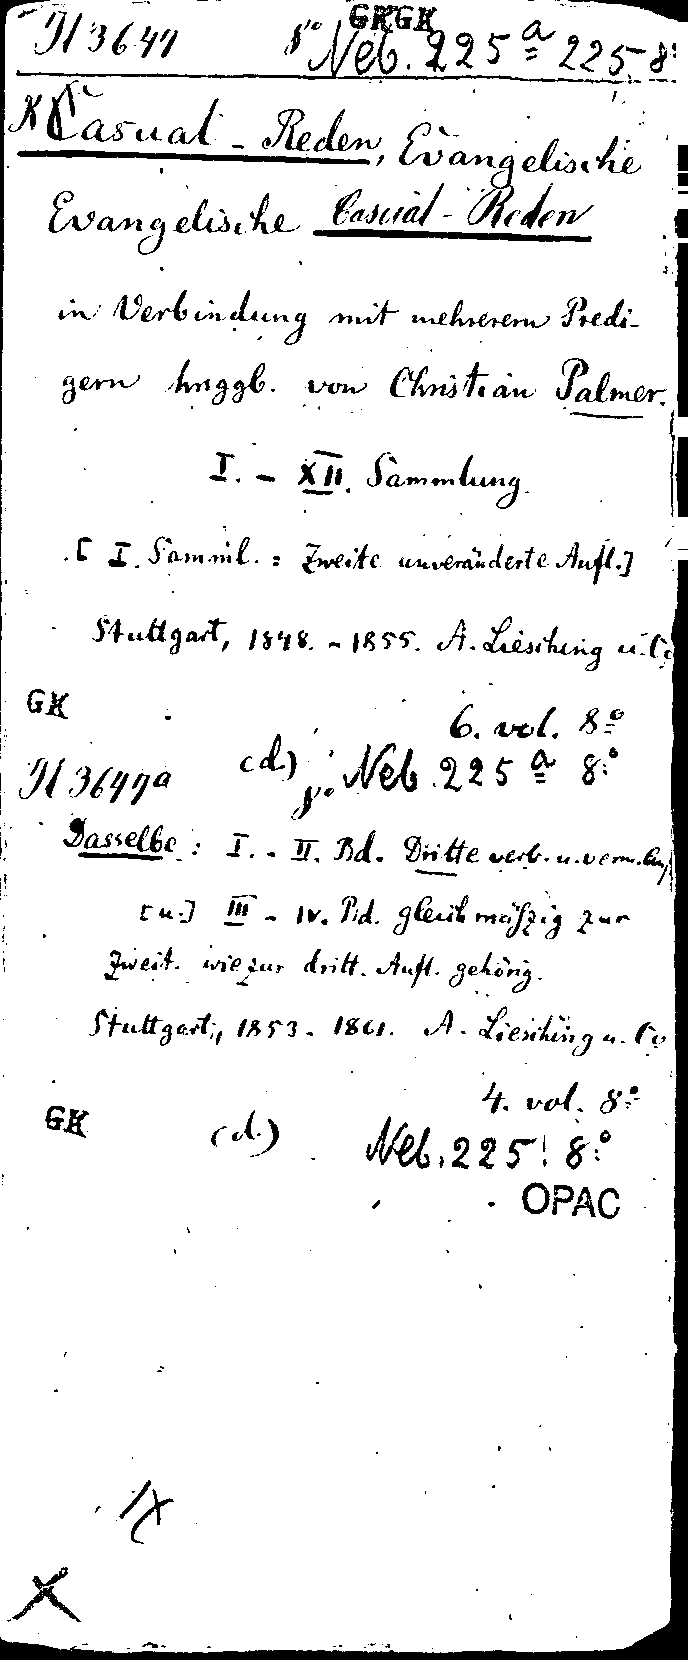 GKGK
Jl 3647 8° Neb. 225 a 225. 8°
K Casual-Reden, Evangelische
Evangelische Casual-Reden
in Verbindung mit mehreren Predi-
gern hrsggb. von Christian Palmer.
I. - XII. Sammlung.
[I. Samml. = Zweite unveränderte Aufl.]
Stuttgart, 1848. - 1855. A. Liesching u. Co
GK
6. vol. 8°
Jl 3647a (d) 8° Neb. 225 a 8°
Dasselbe: I. - II. Bd. Dritte verb. u. verm. Aufl
[u.] III - IV. Bd. gleichmäßig zur
Zweit. wie zur dritt. Aufl. gehörig.
Stuttgart, 1853 - 1861. A. Liesching u. Co
4. vol. 8°
GK (d.) Neb. 225. 8°
OPAC